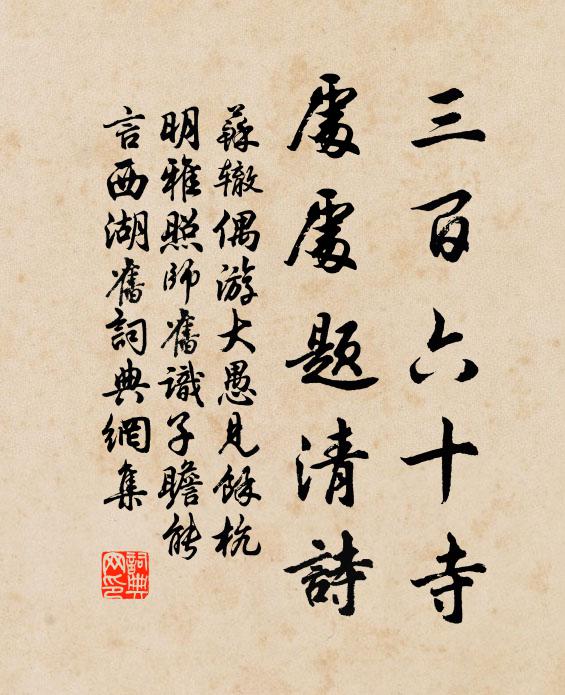 三百六十寺
處處題清詩
蘇辙偶游大愚見餘杭
明雅照師舊識子瞻能
言西湖舊詞典網集
詞典网印